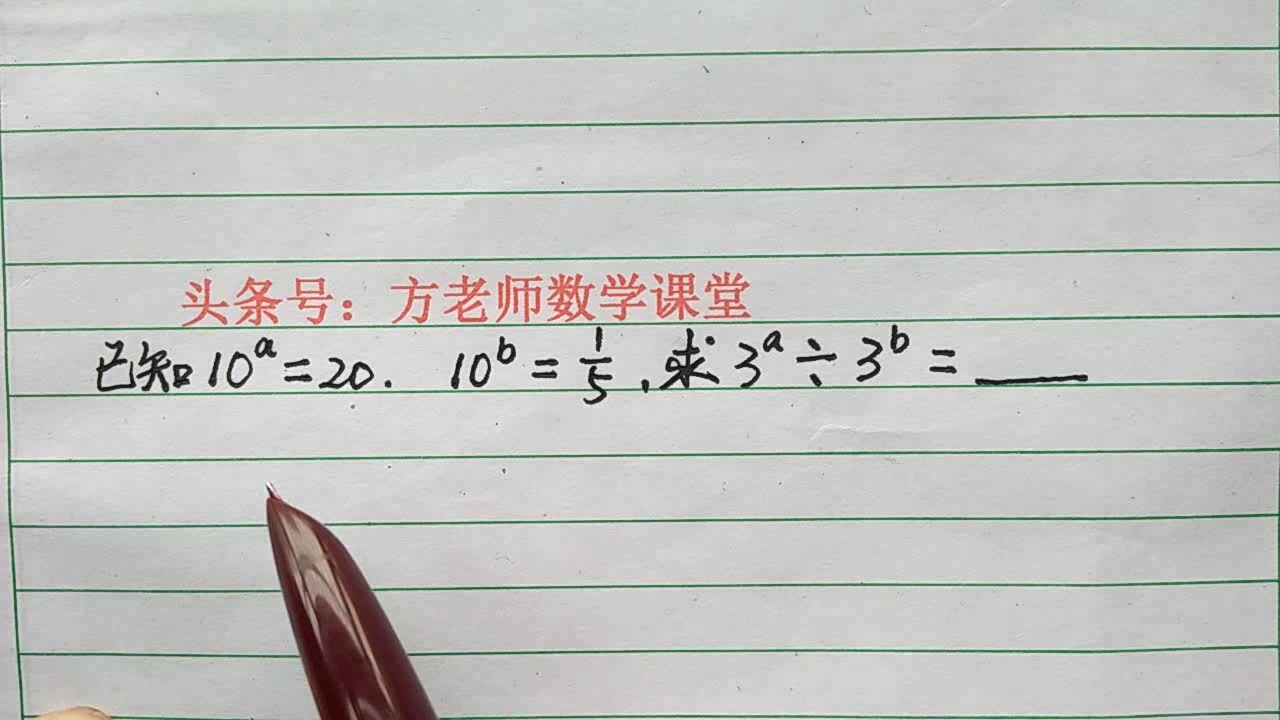 头条号：方老师数学课堂
已知10^a=20. 10^b=1/5,求3^a÷3^b=____